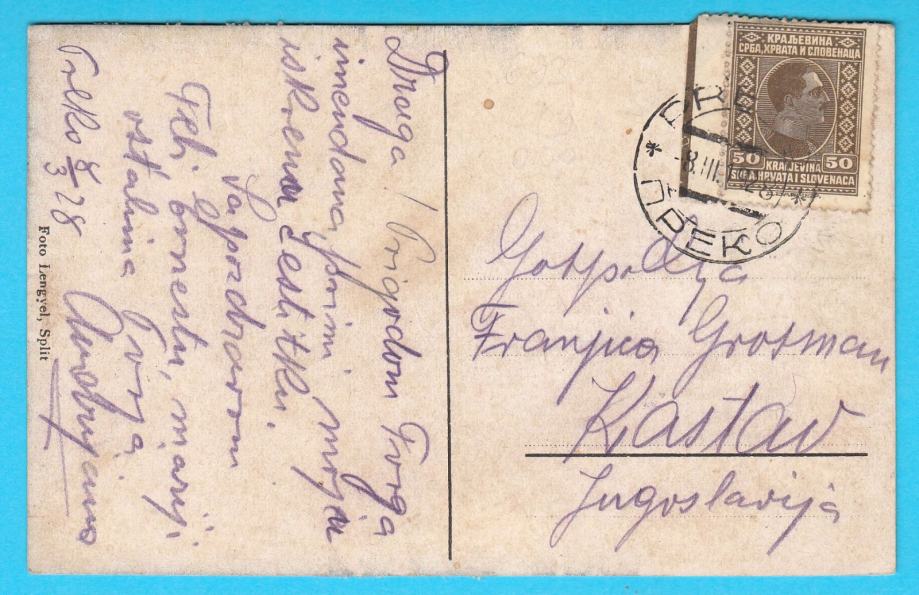 Draga! Prigodom Tvoga
imendana primi moju
iskrenu čestitku.
Sa pozdravom
Tebi, Ernestu, mami
ostalima Tvoja
Preko 8/3 28
Foto Lengyel, Split
КРАЉЕВИНА
СРБА, ХРВАТА И СЛОВЕНАЦА
50 KRALJEVINA 50
SRBA, HRVATA I SLOVENACA
PREKO
-8.III.
28
ПРЕКО
Gospodja
Franjica Grosman
Kastav
Jugoslavija